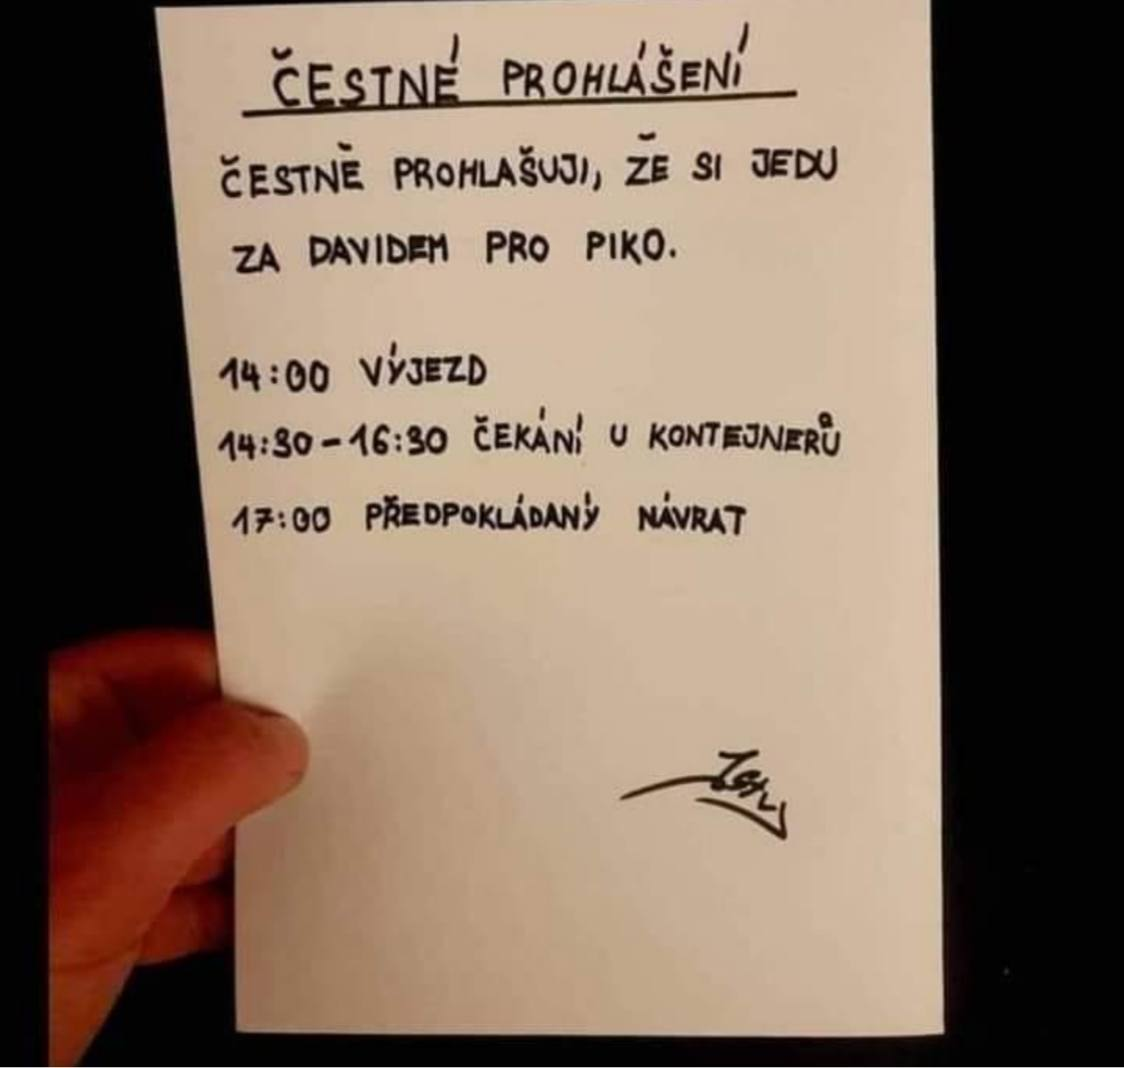 ČESTNÉ PROHLÁŠENÍ
ČESTNĚ PROHLAŠUJI, ŽE SI JEDU
ZA DAVIDEM PRO PIKO.
14:00 VÝJEZD
14:30-16:30 ČEKÁNÍ U KONTEJNERŮ
17:00 PŘEDPOKLÁDANÝ NÁVRAT